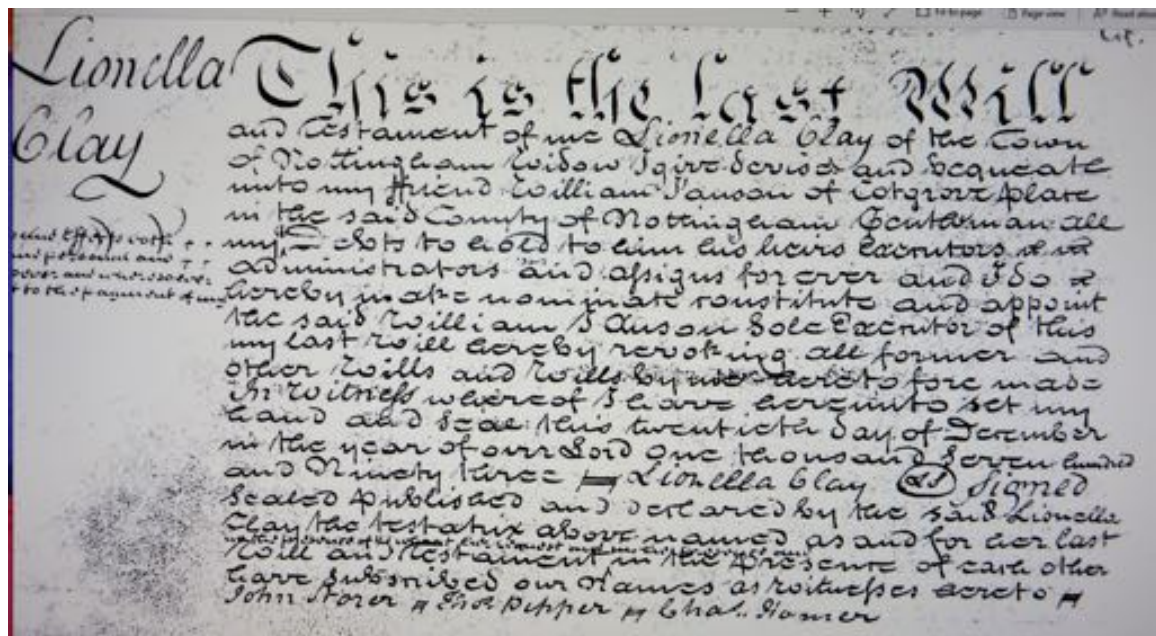 Lionella
Clay
This is the last Will
and Testament of me Lionella Clay of the Town
of Nottingham Widow I give devise and bequeath
unto my ffriend William Janson of Cotgrove place
in the said County of Nottingham Gentleman all
my debts to hold to him his heirs Executors
administrators and assigns for ever and I do
hereby make nominate constitute and appoint
the said William Janson Sole Executor of this
my last Will hereby revoking all former and
other Wills and Wills by me heretofore made
In Witness whereof I have hereunto set my
hand and Seal this twentieth day of December
in the year of our Lord One thousand Seven hundred
and Ninety three Lionella Clay LS Signed
Sealed published and declared by the said Lionella
Clay the testatrix above named as and for her last
Will and Testament in the presence of each other
have Subscribed our Names as witnesses hereto
John Storer Thos. Pepper Chas. Homer
and Effects both
and personal and
ever and whersoever
t to the payment of my
Page view